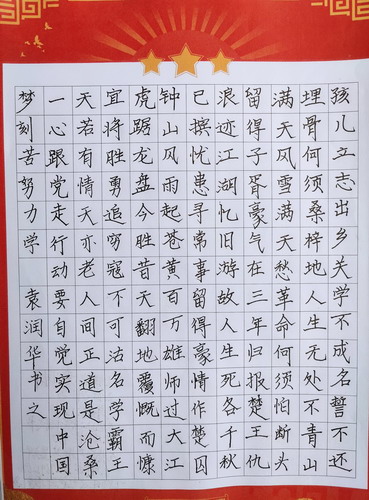 孩儿立志出乡关学不成名誓不还
埋骨何须桑梓地人生无处不青山
满天风雪满天愁革命何须怕断头
留得子胥豪气在三年归报楚王仇
浪迹江湖忆旧游故人生死各千秋
已摈忧患寻常事留得豪情作楚囚
钟山风雨起苍黄百万雄师过大江
虎踞龙盘今胜昔天翻地覆慨而慷
宜将胜勇追穷寇不可沽名学霸王
天若有情天亦老人间正道是沧桑
一心跟党走行动要自觉实现中国
梦刻苦努力学 袁润华书之